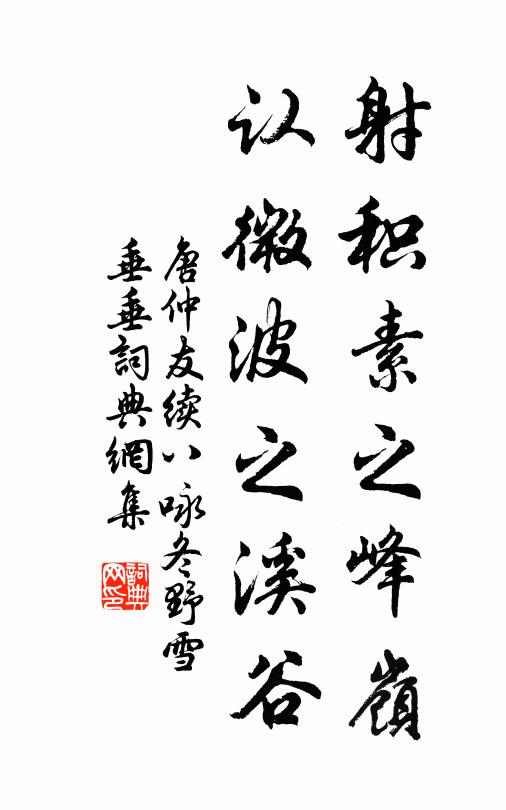 射积素之峰嶺
认微波之溪谷
唐仲友续八咏冬野雪
垂垂詞典網集
詞典网印